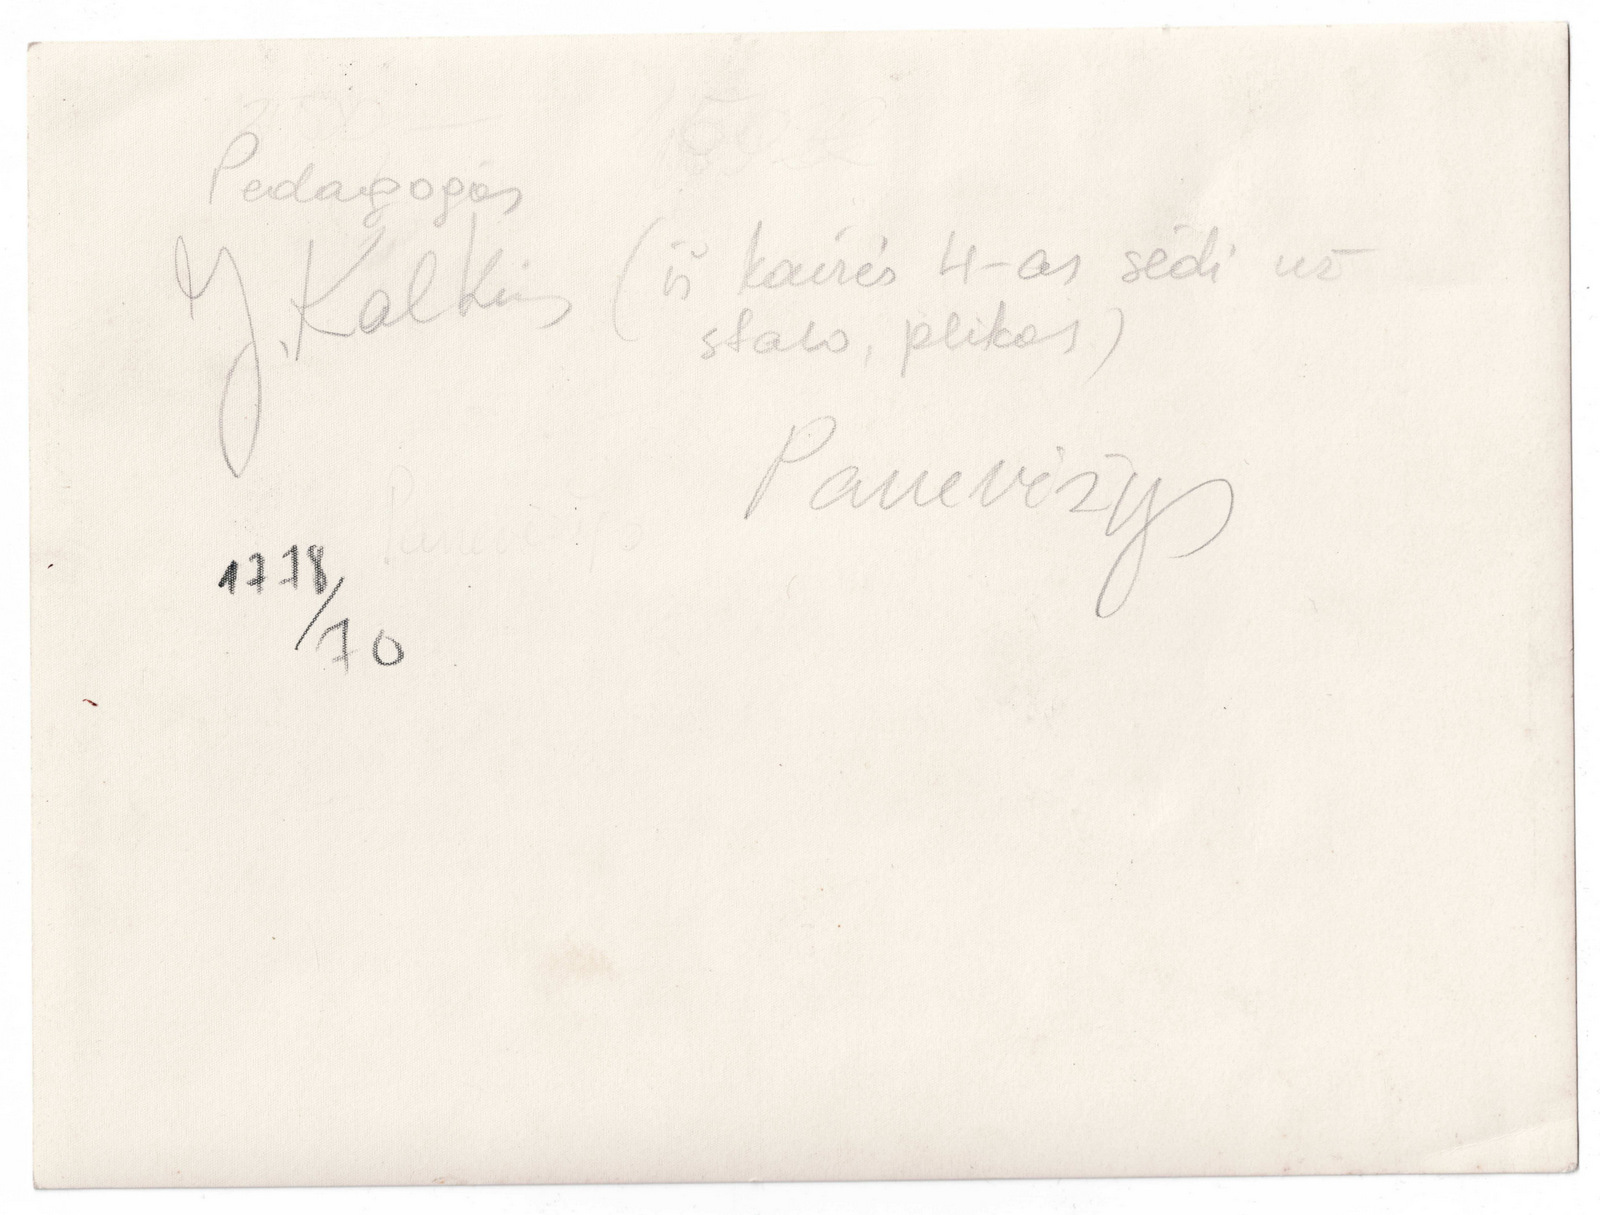 Pedagogas
J. Kalkis (iš kairės 4-as sėdi už
stalo, plikas)
Panevėžys
1778/70